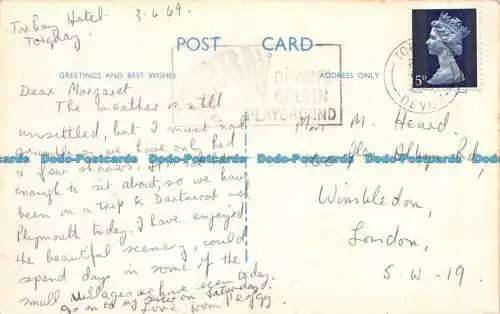 Torbay Hotel. 3.6.69.
Torquay
POST CARD
GREETINGS AND BEST WISHES
ADDRESS ONLY
DEVON'S
GOLDEN
PLAYGROUND
DEVON
5D
Dear Margaret
The weather is still
unsettled, but I must not
grumble as we have only had
a few showers.
enough to sit about, so we have
been on a trip to Dartmoor and
Plymouth today. I have enjoyed
the beautiful scenery, could
spend days in some of the
small villages we have seen today.
go on to my sister on Saturday.
Love from Peggy
M. Heard.
Rd,
Wimbledon,
London,
S.W.19.
Dodo-Postcards Dodo-Postcards Dodo-Postcards Dodo-Postcards Dodo-Postcards